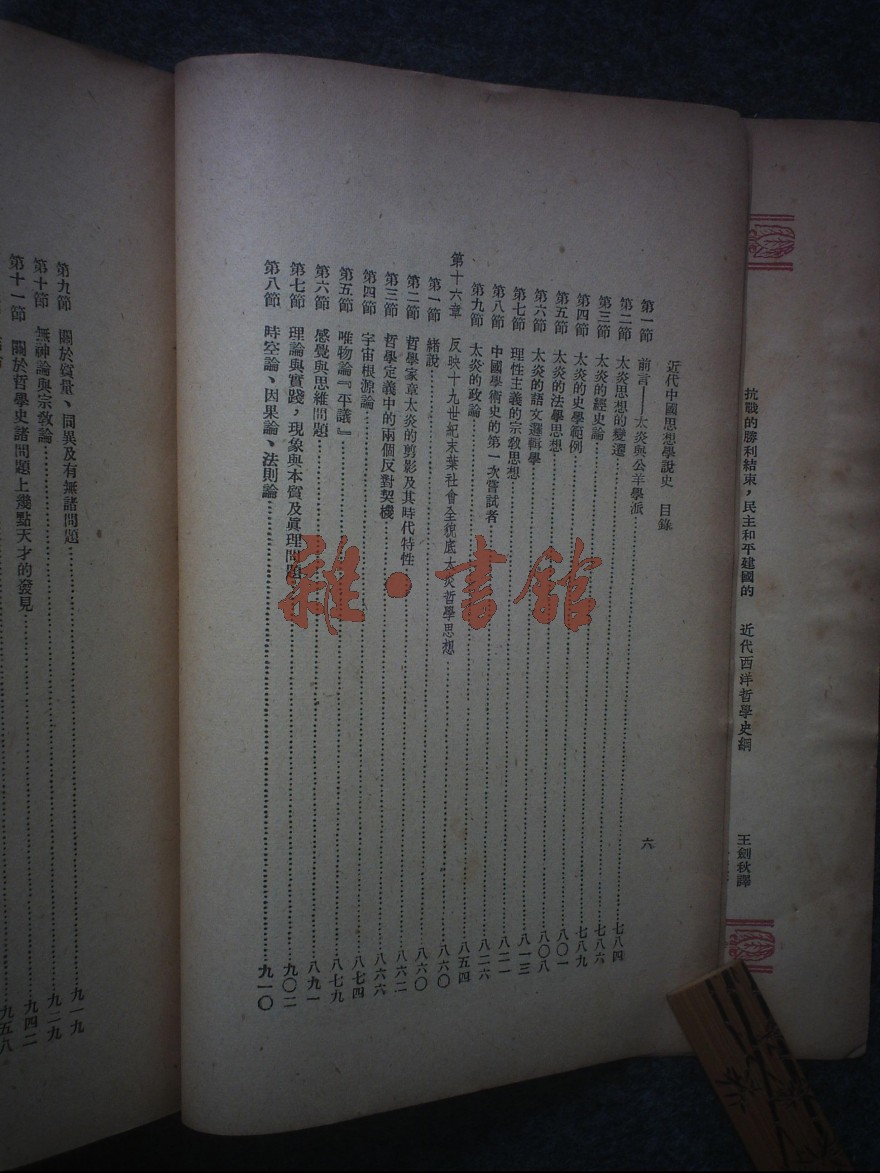 抗戰的勝利結束，民主和平建國的
近代西洋哲學史綱
王劍秋譯
近代中國思想學說史 目錄
六
第一節 前言——太炎與公羊學派……七八四
第二節 太炎思想的變遷……七八六
第三節 太炎的經史論……七八九
第四節 太炎的史學範例……八〇一
第五節 太炎的法學思想……八〇八
第六節 太炎的語文邏輯學……八一三
第七節 理性主義的宗敎思想……八二一
第八節 中國學術史的第一次嘗試者……八二六
第九節 太炎的政論……八五四
第十六章 反映十九世紀末葉社會全貌底太炎哲學思想……八六〇
第一節 緒說……八六〇
第二節 哲學家章太炎的剪影及其時代特性……八六二
第三節 哲學定義中的兩個反對契機……八六六
第四節 宇宙根源論……八七四
第五節 唯物論『平議』……八七九
第六節 感覺與思維問題……八九一
第七節 理論與實踐，現象與本質及眞理問題……九〇二
第八節 時空論、因果論、法則論……九一〇
第九節 關於質量、同異及有無諸問題……九一九
第十節 無神論與宗敎論……九二九
第十一節 關於哲學史諸問題上幾點天才的發見……九四二
九五八
雜·書館